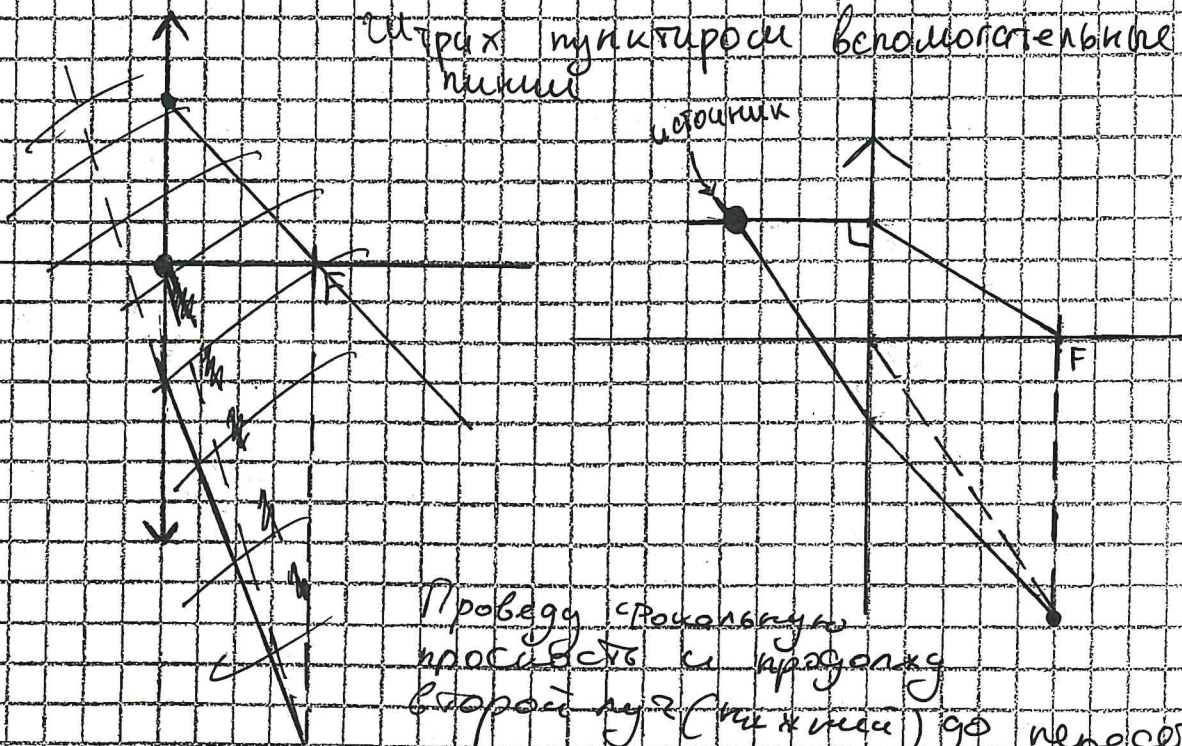 Штрих пунктиром вспомогательные
линии
источник
F
F
Проведу фокальную
плоскость и продолжу
второй луч (нижний) до пересеч